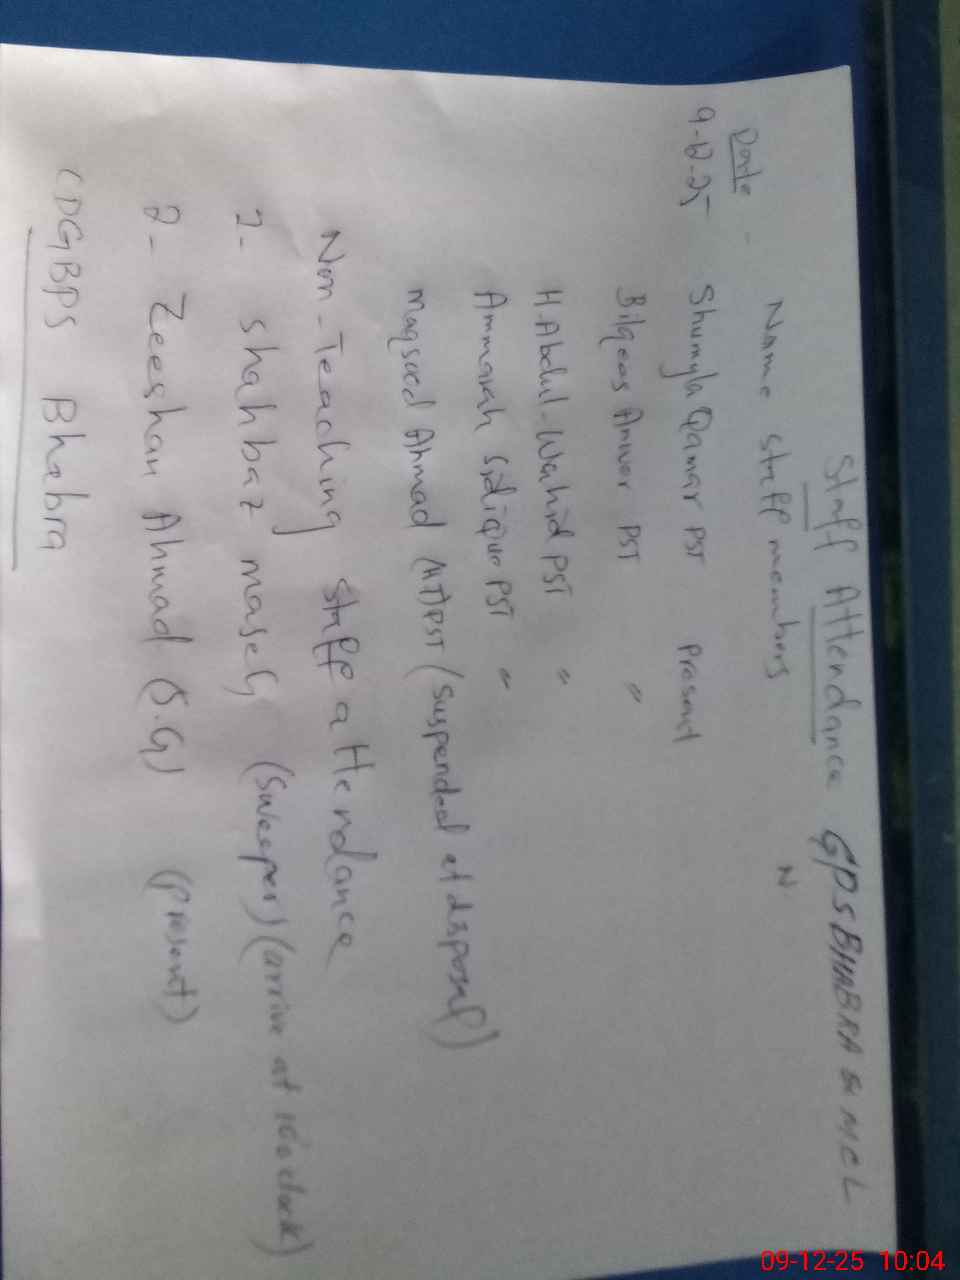 Staff Attendance GPS BHABRA & MCL
Name staff members N
Date -
9-12-25 Shumyla Qamar PST Present
Bilqees Anwer PST "
H. Abdul-Wahid PST "
Ammarah Sidique PST "
Maqsood Ahmad (AT) PST (suspended at disposal)
Non-Teaching staff attendance
1- Shahbaz maseh (Sweeper) (arrive at 10 o clock)
2- Zeeshan Ahmad (S.G) (present)
CDGBPS Bhabra
09-12-25 10:04